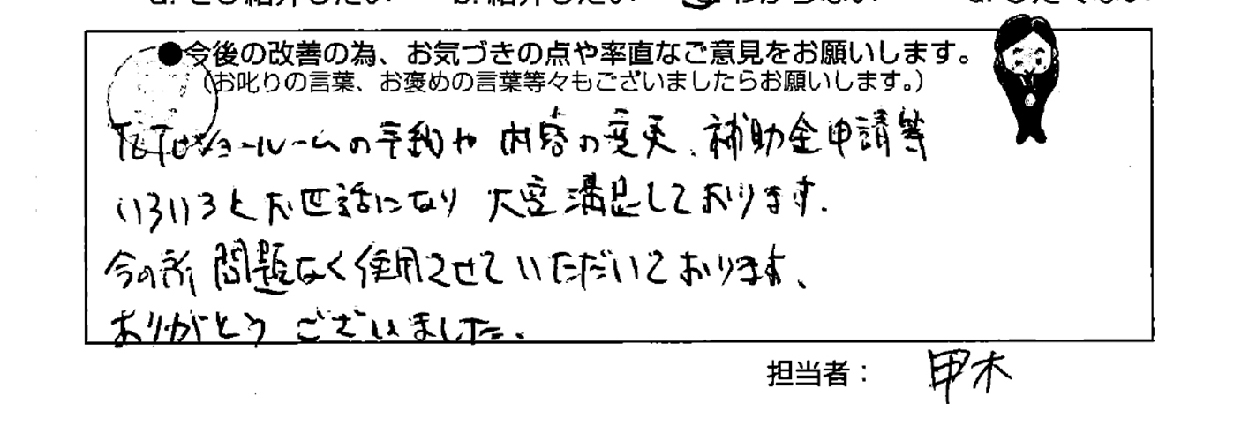 ●今後の改善の為、お気づきの点や率直なご意見をお願いします。
(お叱りの言葉、お褒めの言葉等々もございましたらお願いします。)
ショールームの予約や 内容の変更、補助金申請等
いろいろとお世話になり 大変満足しております.
今の所 問題なく使用させていただいております、
ありがとう ございました.
担当者: 甲木